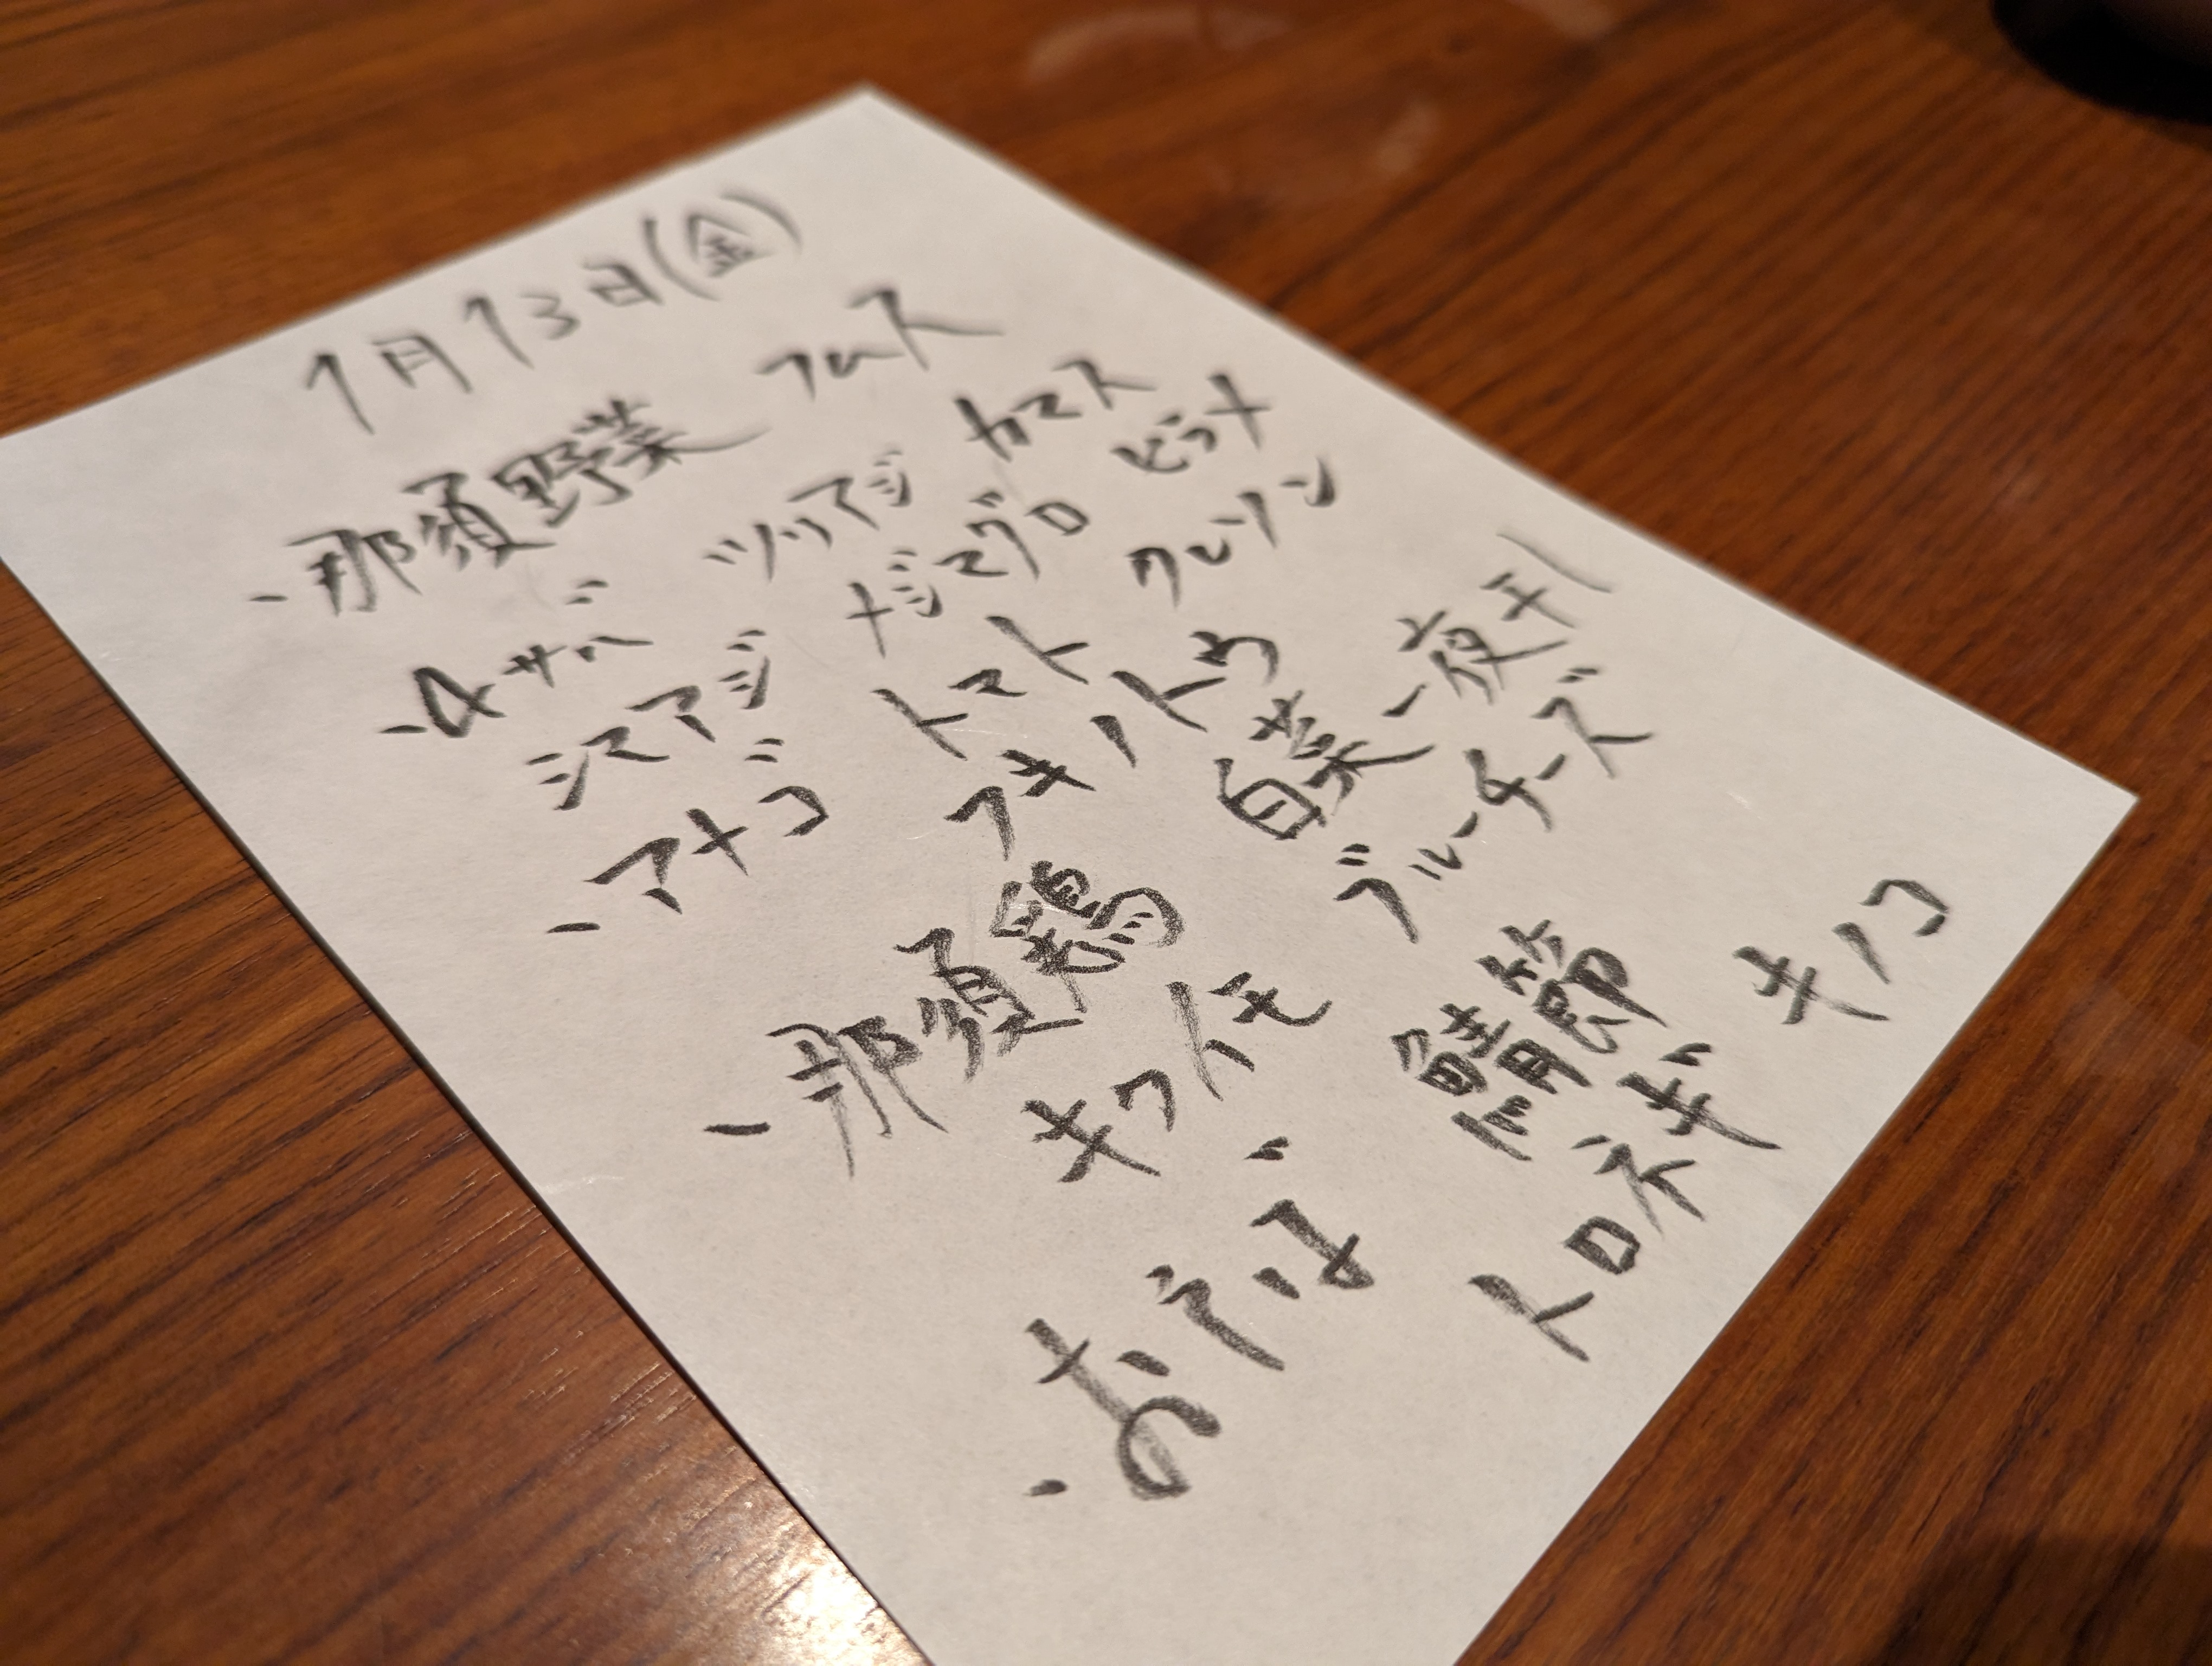 1月13日(金)
-那須野菜 フムス
-〆サバ ツノリアジ カマス
シマアジ ナジマグロ ビラナ
-アナゴ トマト クレソン
フキノトウ
白菜一夜干し
-那須鶏 ブルーチーズ
キクイモ
-おそば 鯖節 キノコ
トロネギ